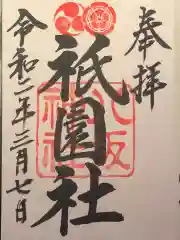 奉拝
八坂
神社
祇園社
令和二年三月七日